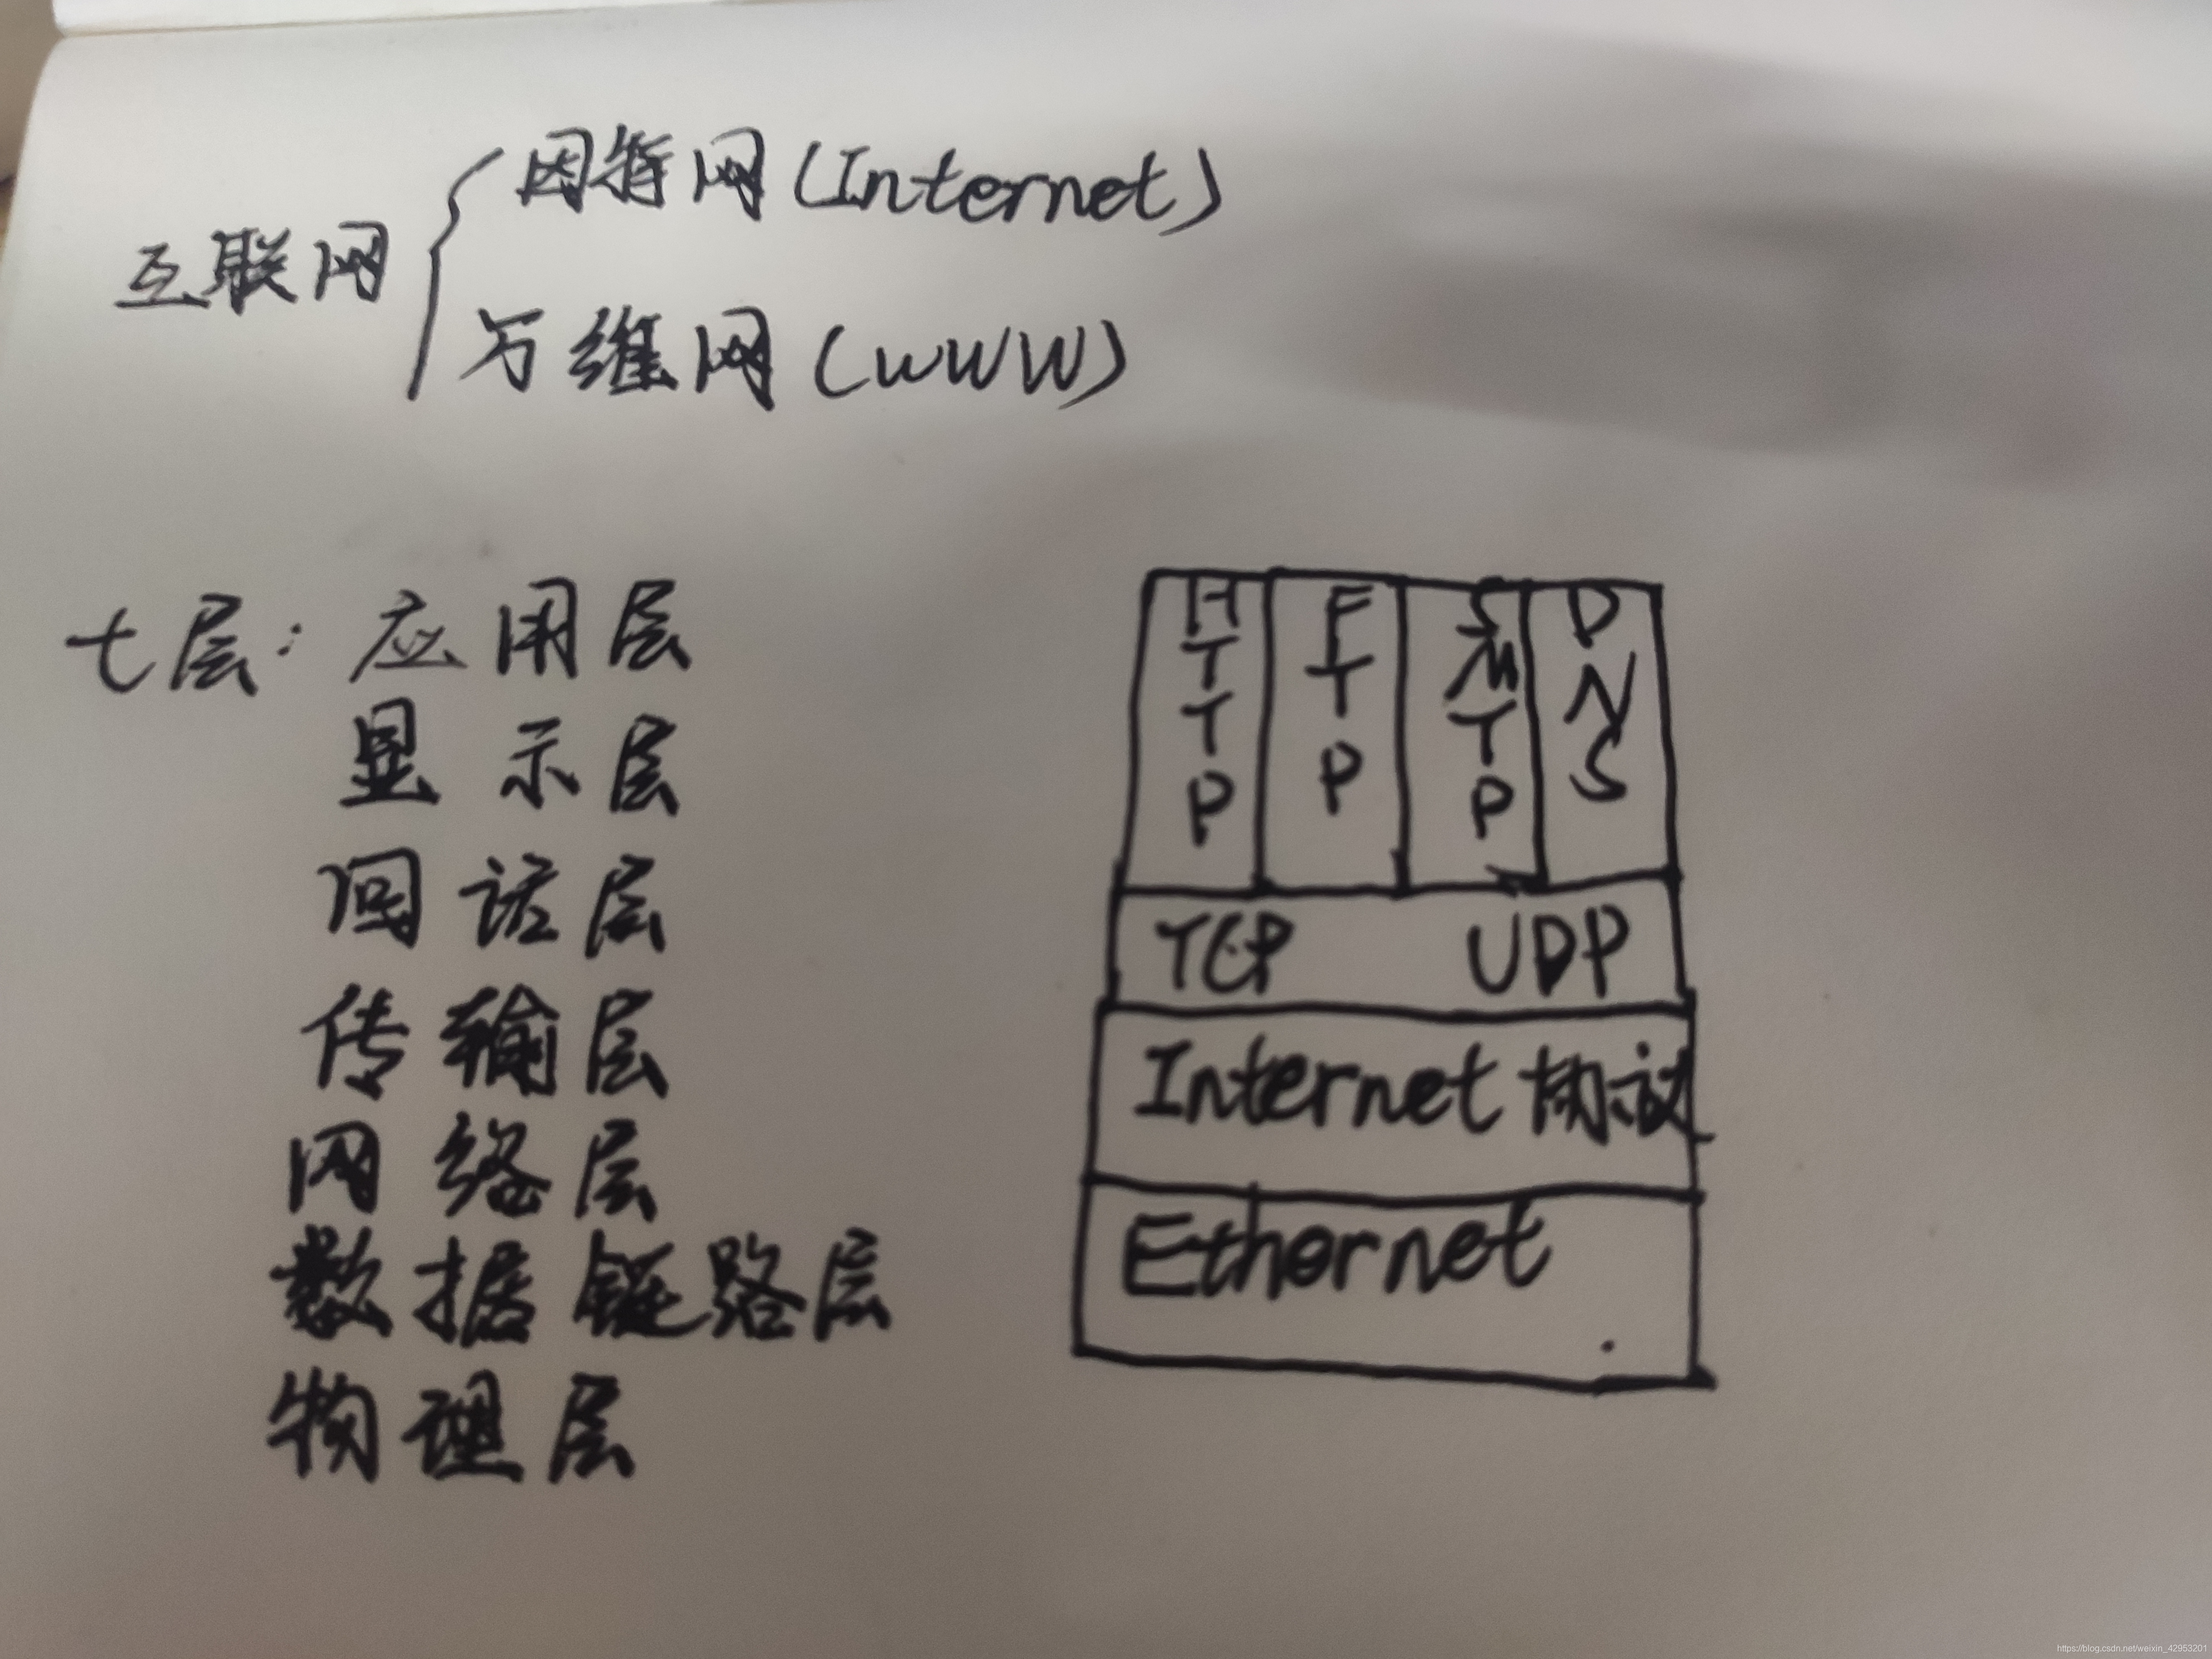 互联网
因特网(Internet)
万维网(WWW)
七层:应用层
显示层
回话层
传输层
网络层
数据链路层
物理层
HTTP
FTP
SMTP
DNS
TCP UDP
Internet 协议
Ethernet
https://blog.csdn.net/weixin_42953201